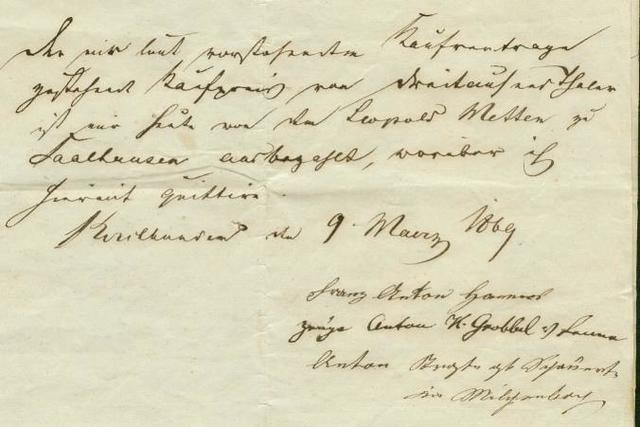 Der mir laut vorstehendem Kaufvertrage
zustehende Kaufpreis von dreitausend Thaler
ist mir heute von dem Leopold Metten zu
Saalhausen ausbezahlt, worüber ich
hiermit quittire.
den 9. Maerz 1869
Franz Anton
zeuge Anton H. Grobbel
Anton gt
in Milchenbach